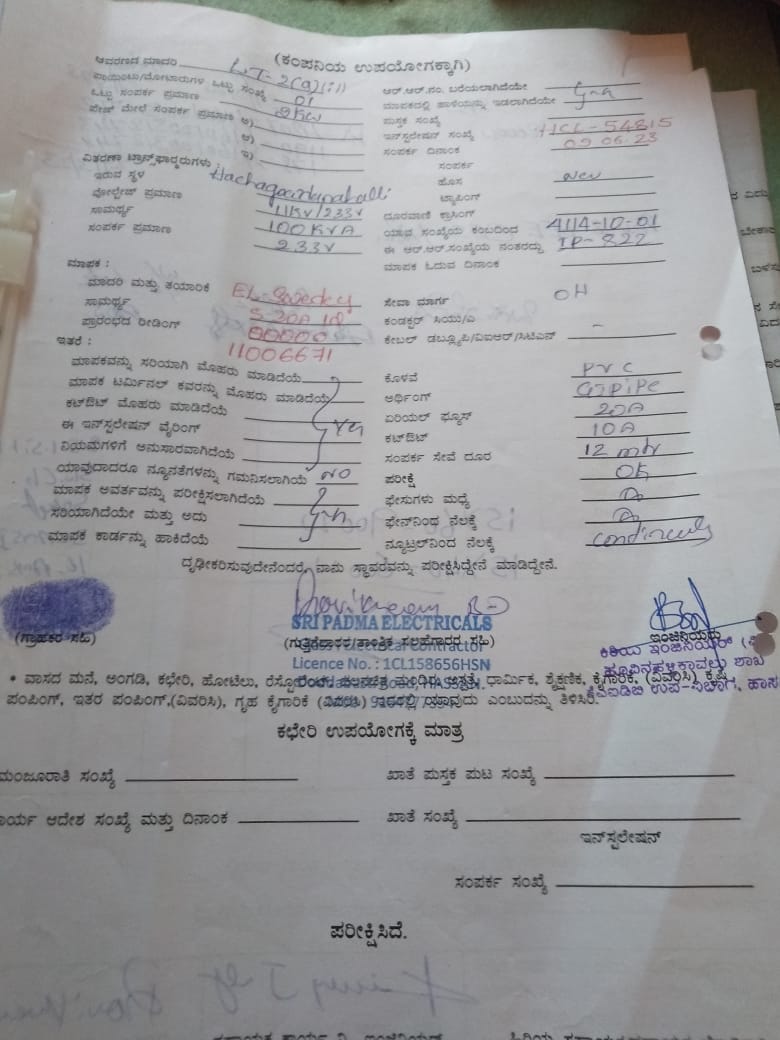 (ಕಂಪನಿಯ ಉಪಯೋಗಕ್ಕಾಗಿ)
ಆವರಣದ ಮಾದರಿ LT-2(a)(ii) ಆರ್.ಆರ್.ನಂ. ಬರೆಯಲಾಗಿದೆಯೇ
ಪಾಯಿಂಟು/ಮೋಟಾರುಗಳ ಒಟ್ಟು ಸಂಖ್ಯೆ 01 ಮಾಪಕದಲ್ಲಿ ಹಾಳೆಯನ್ನು ಇಡಲಾಗಿದೆಯೇ
ಒಟ್ಟು ಸಂಪರ್ಕ ಪ್ರಮಾಣ 2KW ಪುಸ್ತಕ ಸಂಖ್ಯೆ
ಪೇಜ್ ಮೇಲೆ ಸಂಪರ್ಕ ಪ್ರಮಾಣ ಅ) ಇನ್‌ಸ್ಟಲೇಷನ್ ಸಂಖ್ಯೆ HCL-54815
ಆ) ಸಂಪರ್ಕ ದಿನಾಂಕ 09.06.23
ಇ) ಸಂಪರ್ಕ
ವಿತರಣಾ ಟ್ರಾನ್ಸ್‌ಫಾರ್ಮರುಗಳು : ಹೊಸ New
ಇರುವ ಸ್ಥಳ ಟ್ಯಾಪಿಂಗ್
ವೋಲ್ಟೇಜ್ ಪ್ರಮಾಣ 11KV/233V ದೂರವಾಣಿ ಕ್ರಾಸಿಂಗ್
ಸಾಮರ್ಥ್ಯ 100KVA ಯಾವ ಸಂಖ್ಯೆಯ ಕಂಬದಿಂದ 4114-10-01
ಸಂಪರ್ಕ ಪ್ರಮಾಣ 233V ಈ ಆರ್.ಆರ್.ಸಂಖ್ಯೆಯ ನಂತರದ್ದು IP-822
ಮಾಪಕ : ಮಾಪಕ ಓದುವ ದಿನಾಂಕ
ಮಾದರಿ ಮತ್ತು ತಯಾರಿಕೆ ಸೇವಾ ಮಾರ್ಗ OH
ಸಾಮರ್ಥ್ಯ 5-20A ಕಂಡಕ್ಟರ್ ಸಿಯು/ಎ
ಪ್ರಾರಂಭದ ರೀಡಿಂಗ್ 00000 ಕೇಬಲ್ ಡಬ್ಲ್ಯೂಪಿ/ವಿಐಆರ್/ಸಿಟಿಎನ್ –
ಇತರೆ : 11006671
ಮಾಪಕವನ್ನು ಸರಿಯಾಗಿ ಮೊಹರು ಮಾಡಿದೆಯೆ ಕೊಳವೆ PVC
ಮಾಪಕ ಟರ್ಮಿನಲ್ ಕವರನ್ನು ಮೊಹರು ಮಾಡಿದೆಯೆ ಅರ್ಥಿಂಗ್ GI PiPe
ಕಟ್‌ಔಟ್ ಮೊಹರು ಮಾಡಿದೆಯೆ ಏರಿಯಲ್ ಫ್ಯೂಸ್ 20A
ಈ ಇನ್‌ಸ್ಟಲೇಷನ್ ವೈರಿಂಗ್ Yes ಕಟ್‌ಔಟ್ 10A
ನಿಯಮಗಳಿಗೆ ಅನುಸಾರವಾಗಿದೆಯೆ ಸಂಪರ್ಕ ಸೇವೆ ದೂರ 12 mtr
ಯಾವುದಾದರೂ ನ್ಯೂನತೆಗಳನ್ನು ಗಮನಿಸಲಾಗಿಯೆ NO ಪರೀಕ್ಷೆ OK
ಮಾಪಕ ಅವರ್ತವನ್ನು ಪರೀಕ್ಷಿಸಲಾಗಿದೆಯೆ ಫೇಸುಗಳು ಮಧ್ಯೆ
ಸರಿಯಾಗಿದೆಯೇ ಮತ್ತು ಅದು ಫೇಸ್‌ನಿಂದ ನೆಲಕ್ಕೆ
ಮಾಪಕ ಕಾರ್ಡನ್ನು ಹಾಕಿದೆಯೆ ನ್ಯೂಟ್ರಲ್‌ನಿಂದ ನೆಲಕ್ಕೆ
ದೃಢೀಕರಿಸುವುದೇನೆಂದರೆ, ನಾನು ಸ್ಥಾವರವನ್ನು ಪರೀಕ್ಷಿಸಿದ್ದೇನೆ ಮಾಡಿದ್ದೇನೆ.
SRI PADMA ELECTRICALS
(ಗ್ರಾಹಕರ ಸಹಿ) (ಗುತ್ತಿಗೆದಾರರ/ತಾಂತ್ರಿಕ ಸಲಹೆಗಾರರ ಸಹಿ) ಇಂಜಿನಿಯರು
Electrical Contractor ಕಿರಿಯ ಇಂಜಿನಿಯರ್
Licence No. : 1CL158656HSN
• ವಾಸದ ಮನೆ, ಅಂಗಡಿ, ಕಛೇರಿ, ಹೋಟೆಲು, ರೆಸ್ಟೋರೆಂಟ್, ಚಲನಚಿತ್ರ ಮಂದಿರ, ಆಸ್ಪತ್ರೆ, ಧಾರ್ಮಿಕ, ಶೈಕ್ಷಣಿಕ, ಕೈಗಾರಿಕೆ, (ವಿವರಿಸಿ) ಕೃಷಿ
ಪಂಪಿಂಗ್, ಇತರ ಪಂಪಿಂಗ್,(ವಿವರಿಸಿ), ಗೃಹ ಕೈಗಾರಿಕೆ (ವಿವರಿಸಿ) ಇದರಲ್ಲಿ ಯಾವುದು ಎಂಬುದನ್ನು ತಿಳಿಸಿರಿ.
ಕಛೇರಿ ಉಪಯೋಗಕ್ಕೆ ಮಾತ್ರ
ಮಂಜೂರಾತಿ ಸಂಖ್ಯೆ ಖಾತೆ ಪುಸ್ತಕ ಪುಟ ಸಂಖ್ಯೆ
ಆದೇಶ ಸಂಖ್ಯೆ ಮತ್ತು ದಿನಾಂಕ ಖಾತೆ ಸಂಖ್ಯೆ
ಇನ್‌ಸ್ಟಲೇಷನ್
ಸಂಪರ್ಕ ಸಂಖ್ಯೆ
ಪರೀಕ್ಷಿಸಿದೆ.